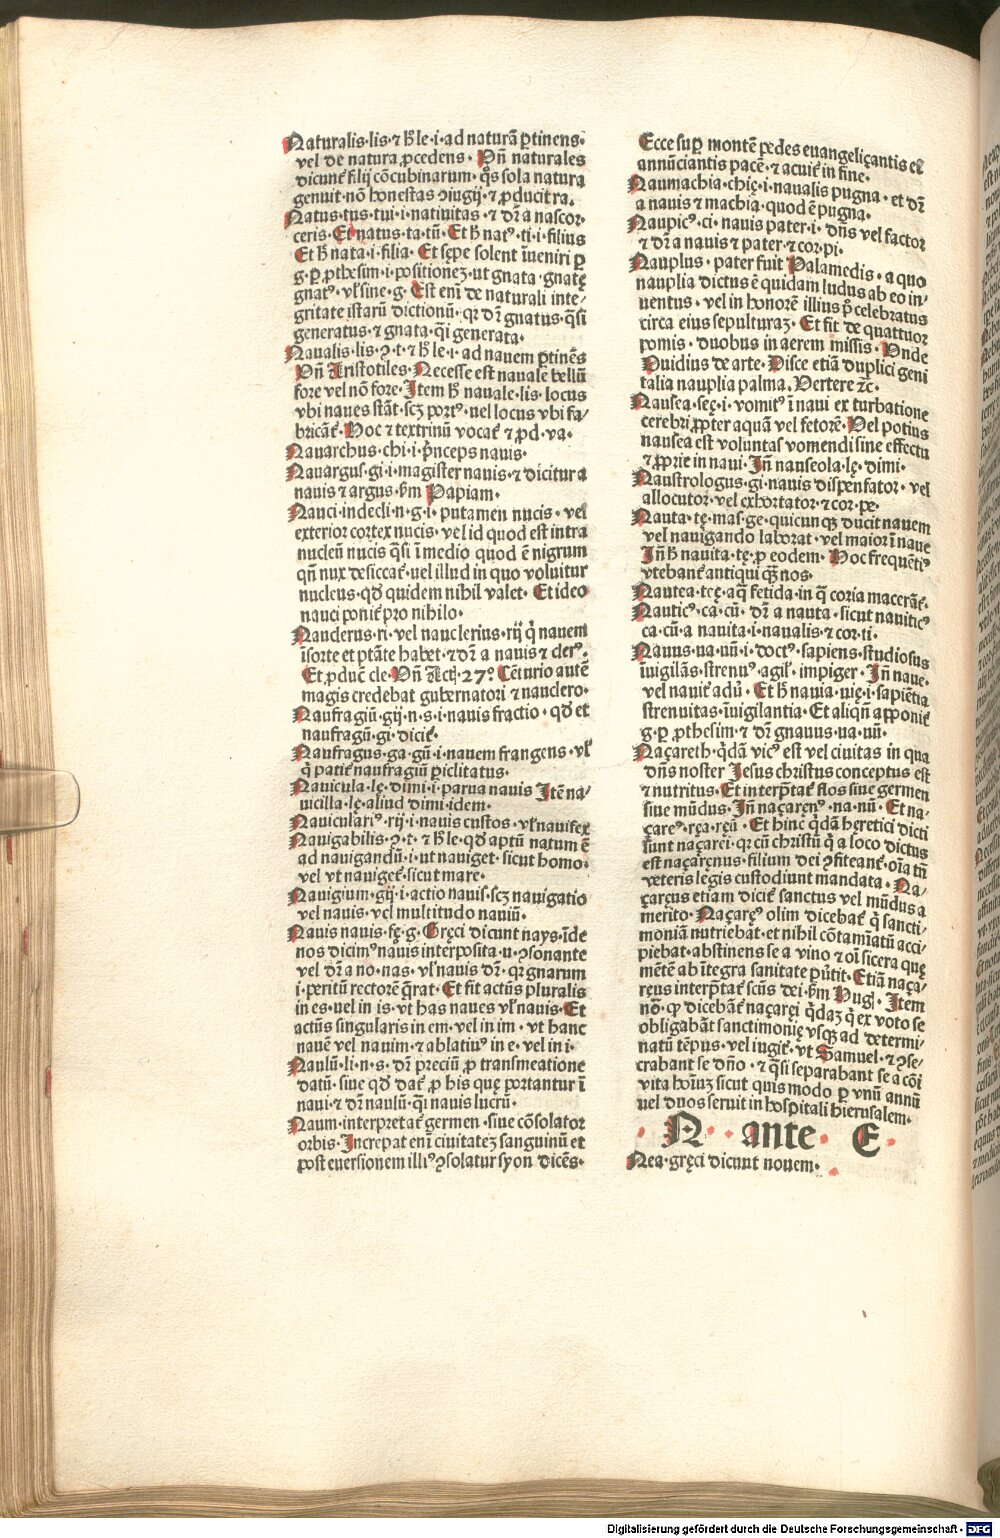 Naturalis·lis·⁊ h̄ le·i·ad naturā ꝑtinens·
vel de natura ꝓcedens· Vn̄ naturales
dicunt᷑ filij cōcubinarum· qͦs sola natura
genuit·nō honestas ꝯiugij·⁊ ꝓducit ra·
Natus·tus·tui·i·natiuitas·⁊ dr̄ a nascor·
ceris·Et natus·ta·tū·Et h̄ natꝰ·ti·i·filius
Et h̄ nata·i·filia·Et sępe solent īueniri ꝑ
g·ꝑ ꝓthesim·i·positionez·ut gnata·gnatę
gnatꝰ·vl̓ sine·g·Est eni᷑ de naturali inte⸗
gritate istarū dictionū·qꝛ dr̄ gnatus·q̄si
generatus·⁊ gnata·q̄i generata·
Naualis·lis·ꝯ·t·⁊ h̄ le·i·ad nauem ꝑtinēs
Vn̄ Aristotiles·Necesse est nauale bellū
fore vel nō fore·Item h̄ nauale·lis·locus
vbi naues stāt·scꝫ portꝰ·uel locus vbi fa⸗
bricāt᷑·Hoc ⁊ textrinū vocat᷑ ⁊ ꝓd·va·
Nauarchus·chi·i·p̄nceps nauis·
Nauargus·gi·i·magister nauis·⁊ dicitur a
nauis ⁊ argus·ẜm Papiam·
Nauci·indecli·n·g·i·putamen nucis·vel
exterior cortex nucis·vel id quod est intra
nucleū nucis q̄si ī medio quod ē nigrum
qn̄ nux desiccat᷑·uel illud in quo voluitur
nucleus·qd̓ quidem nihil valet·Et ideo
nauci ponit᷑ pro nihilo·
Nauclerus·ri·vel nauclerius·rij qͥ nauem
īsorte et ptāte habet·⁊ dr̄ a nauis ⁊ clerꝰ·
Et ꝓduc᷑ cle·Vn̄ Actꝗ·27·° Cēturio autē
magis credebat gubernatori ⁊ nauclero·
Naufragiū·gij·n·s·i·nauis fractio·qd̓ et
naufragiū·gi·dicit᷑·
Naufragus·ga·gū·i·nauem frangens·vl̓
qͥ patit᷑ naufragiū ꝑiclitatus·
Nauicula·lę·dimi·i·parua nauis Itē na⸗
uicilla·lę·aliud dimi·idem·
Nauiculariꝰ·rij·i·nauis custos·vl̓ nauifex
Nauigabilis·ꝯ·t·⁊ h̄ le·qd̓ aptū natum ē
ad nauigandū·i·ut nauiget·sicut homo·
vel vt nauiget᷑·sicut mare·
Nauigium·gij·i·actio nauis·scꝫ nauigatio
vel nauis·vel multitudo nauiū·
Nauis nauis·fę·g·Gręci dicunt nays·īde
nos dicimꝰ nauis interposita·u·ꝯsonante
vel dr̄ a no·nas·vl̓ nauis dr̄·qꝛ gnarum
i·peritū rectorē q̄rat·Et fit actūs pluralis
in es·uel in is·vt has naues vl̓ nauis·Et
actūs singularis in em·vel in im·vt hanc
nauē vel nauim·⁊ ablatiuꝰ in e·vel in i·
Naulū·li·n·s·dr̄ preciū ꝓ transmeatione
datū·siue qd̓ dat᷑ ꝓ his quę portantur ī
naui·⁊ dr̄ naulū·q̄i nauis lucrū·
Naum·interpretat᷑ germen·siue cōsolator
orbis·Increpat eni᷑ ciuitateꝫ sanguinū et
post euersionem illiꝰ ꝯsolatur syon dicēs·
Ecce suꝑ montē pedes euangeliçantis et
annūciantis pacē·⁊ acuit᷑ in fine·
Naumachia·chię·i·naualis pugna·et dr̄
a nauis ⁊ machia·quod ē pugna·
Naupicꝰ·ci·nauis pater·i·dn̄s vel factor
⁊ dr̄ a nauis ⁊ pater·⁊ cor·pi·
Nauplus·pater fuit Palamedis·a quo
nauplia dictus ē quidam ludus ab eo in⸗
uentus·vel in honorē illius pͥ celebratus
circa eius sepulturaꝫ·Et fit de quattuor
pomis·duobus in aerem missis·Vnde
Ouidius de arte·Disce etiā duplici geni
talia nauplia palma·Vertere ⁊c·
Nausea·seę·i·vomitꝰ ī naui ex turbatione
cerebri ꝓpter aquā vel fetorē·Vel potius
nausea est voluntas vomendi sine effectu
⁊ ꝓprie in naui·In̄ nauseola·lę·dimi·
Naustrologus·gi·nauis dispensator·vel
allocutor·vel exhortator·⁊ cor·pe·
Nauta·tę·mas·ge·quicunqꝫ ducit nauem
vel nauigando laborat·vel maior ī naue
In̄ h̄ nauita·tę·ꝓ eodem·Hoc frequētiꝰ
vtebant᷑ antiqui qͣꝫ nos·
Nautea·teę·aq̄ fetida·in q̄ coria macerāt᷑·
Nauticꝰ·ca·cū·dr̄ a nauta·sicut nauiticꝰ
ca·cū·a nauita·i·naualis·⁊ cor·ti·
Nauus·ua·uū·i·doctꝰ·sapiens·studiosus
īuigilās·strenuꝰ·agil᷑·impiger·In̄ naue·
vel nauit᷑ adū·Et h̄ nauia·uię·i·sapiētia
strenuitas·īuigilantia·Et aliqn̄ apponit᷑
g·ꝑ ꝓthesim·⁊ dr̄ gnauus·ua·uū·
Naçareth·qͥdā vicꝰ est vel ciuitas in qua
dn̄s noster Jesus christus conceptus est
⁊ nutritus·Et interp̄tat᷑ flos siue germen
siue mūdus·In̄ naçaręnꝰ·na·nū·Et na⸗
çarеꝰ·ręa·ręū·Et hinc qͥdā hęretici dicti
sunt naçarei·qꝛ cū christū qͥ a loco dictus
est naçaręnus·filium dei ꝯfiteant᷑·oīa tn̄
veteris legis custodiunt mandata·Na⸗
çaręus etiam dicit᷑ sanctus vel mūdus a
merito·Naçaręꝰ olim dicebat᷑ qͥ sancti⸗
moniā nutriebat·et nihil cōtamīatū acci⸗
piebat·abstinens se a vino ⁊ oī sicera quę
mētē ab ītegra sanitate ꝑu̓tit·Etiā naça⸗
ręus interp̄tat᷑ scūs dei·ẜm Hug᷑·Item
nō·ꝙ dicebāt᷑ naçaręi qͥdaꝫ qͥ ex voto se
obligabāt sanctimonię vsqꝫ ad determi⸗
natū tēpus·vel iugit᷑·vt Samuel·⁊ ꝯse⸗
crabant se dn̄o·⁊ q̄si separabant se a cōi
vita hoīuꝫ sicut quis modo ꝑ vnū annū
uel duos seruit in hospitali hierusalem·
N· ante· E·
Nea·gręci dicunt nouem·
Digitalisierung gefördert durch die Deutsche Forschungsgemeinschaft - DFG